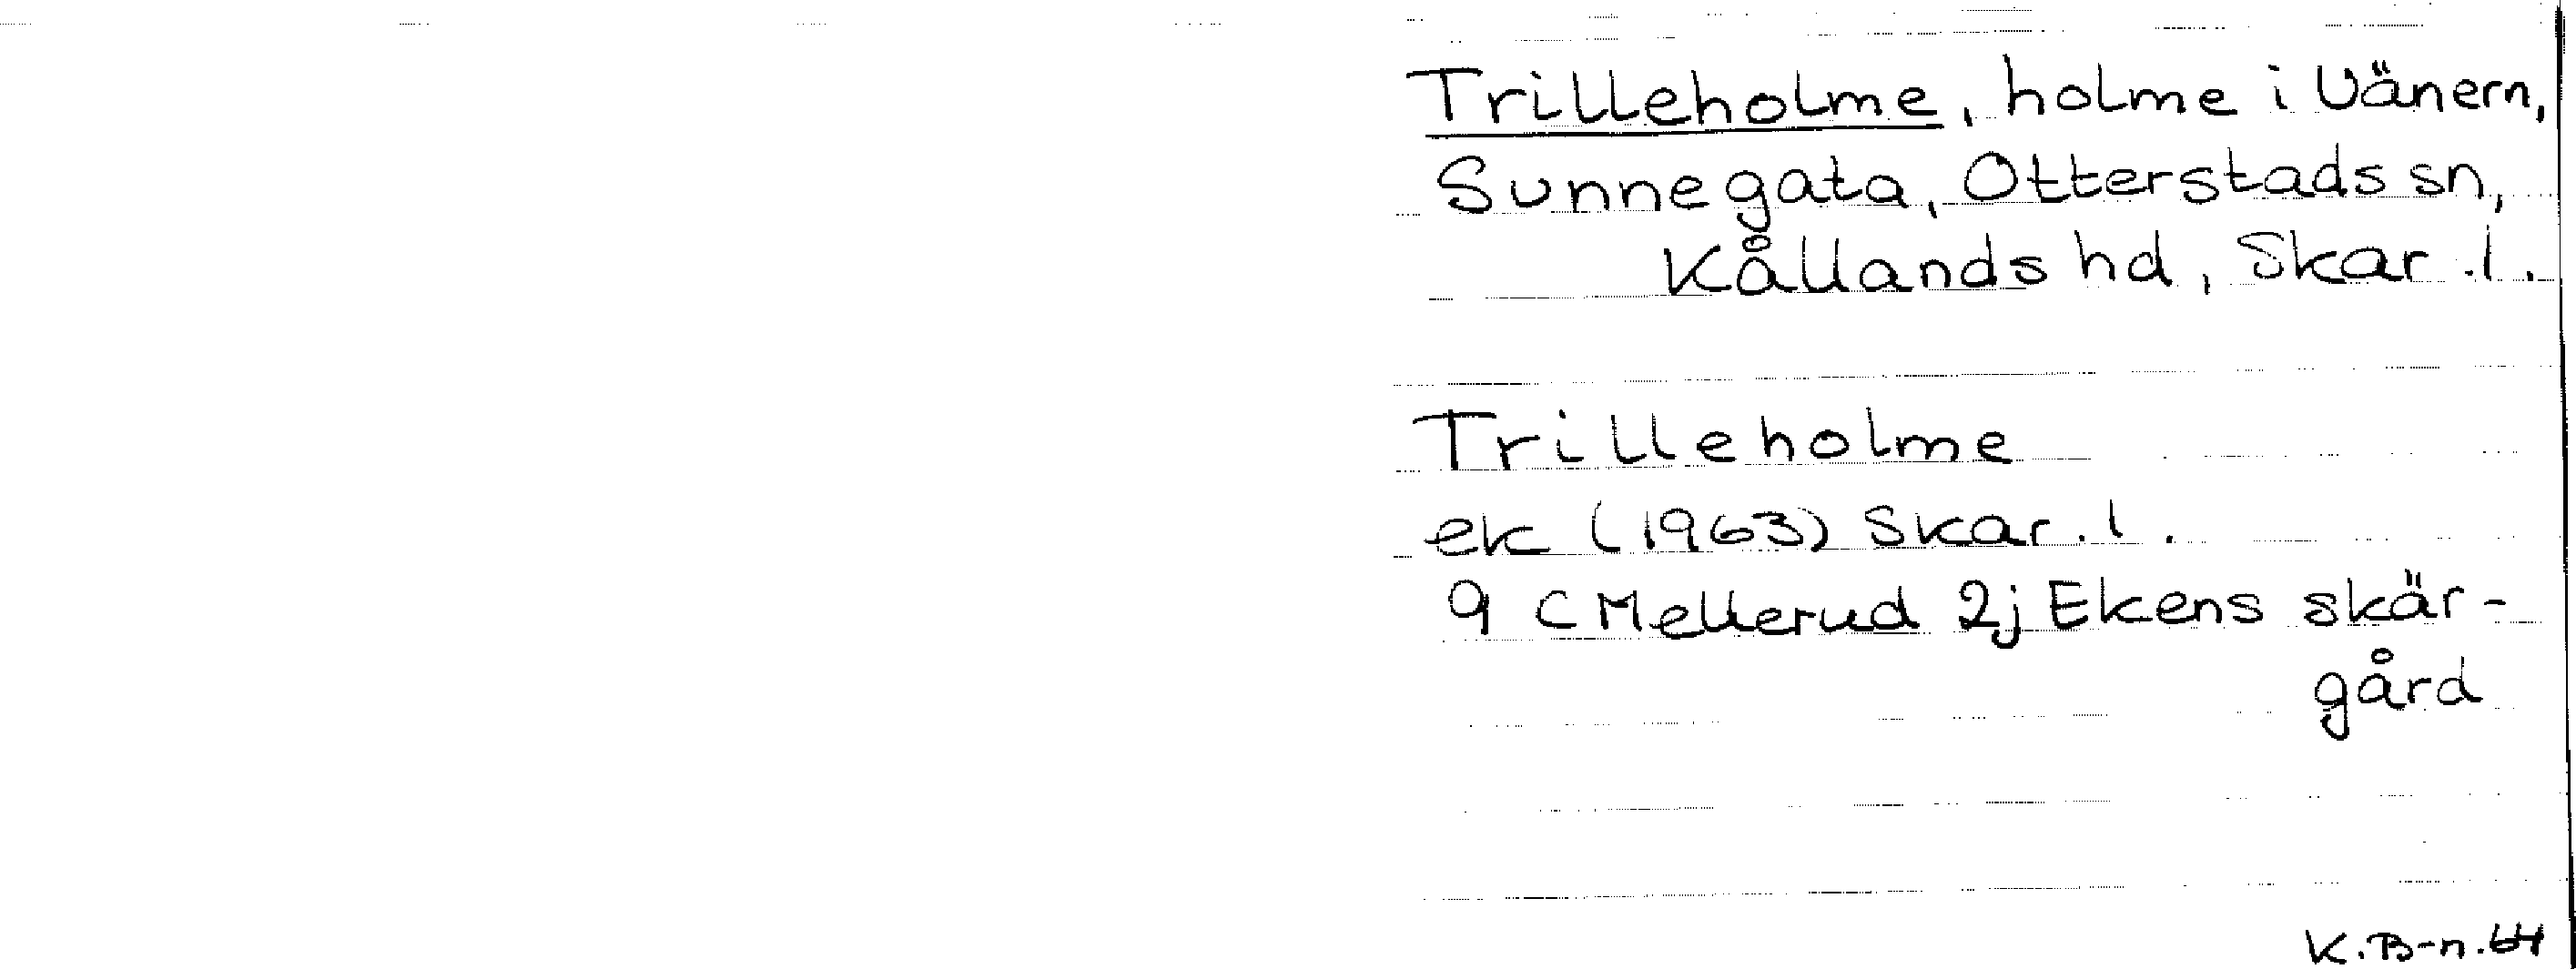 Trilleholme, holme i Vänern,
Sunnegata, Otterstads sn,
Kållands hd, Skar.l.
Trilleholme
ek (1963) Skar.l.
9 C Mellerud 2j Ekens skär-
gård
K.B-n.64